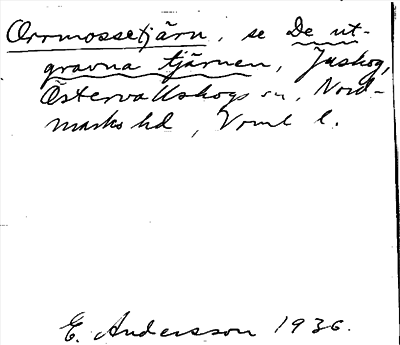 Orrmossetjärn, se De ut-
gravna tjärnen, Juskog,
Östervallskogs sn, Nord-
marks hd, Vrml l.
E. Andersson 1936.